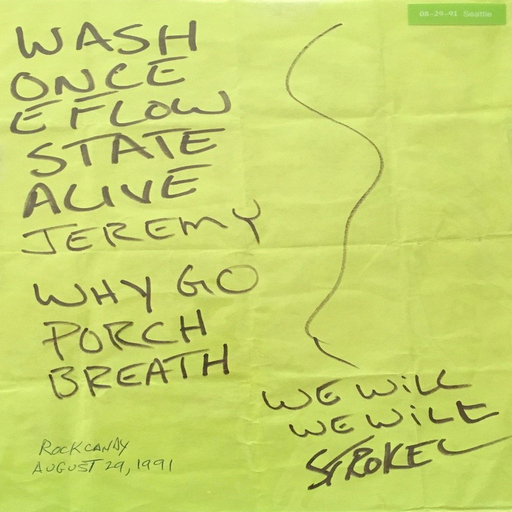 08-29-91 Seattle
WASH
ONCE
E FLOW
STATE
ALIVE
JEREMY
WHY GO
PORCH
BREATH
WE WILL
WE WILL
STROKE
ROCKCANDY
AUGUST 29, 1991